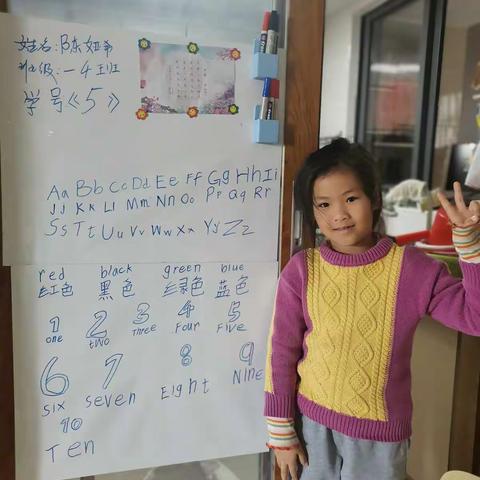 姓名:陈如希
班级:一4班
学号《5》
Aa Bb Cc Dd Ee Ff Gg Hh Ii
Jj Kk Ll Mm Nn Oo Pp Qq Rr
Ss Tt Uu Vv Ww Xx Yy Zz
red black green blue
红色 黑色 绿色 蓝色
1 2 3 4 5
one two Three Four Five
6 7 8 9
Six Seven Eight Nine
10
Ten